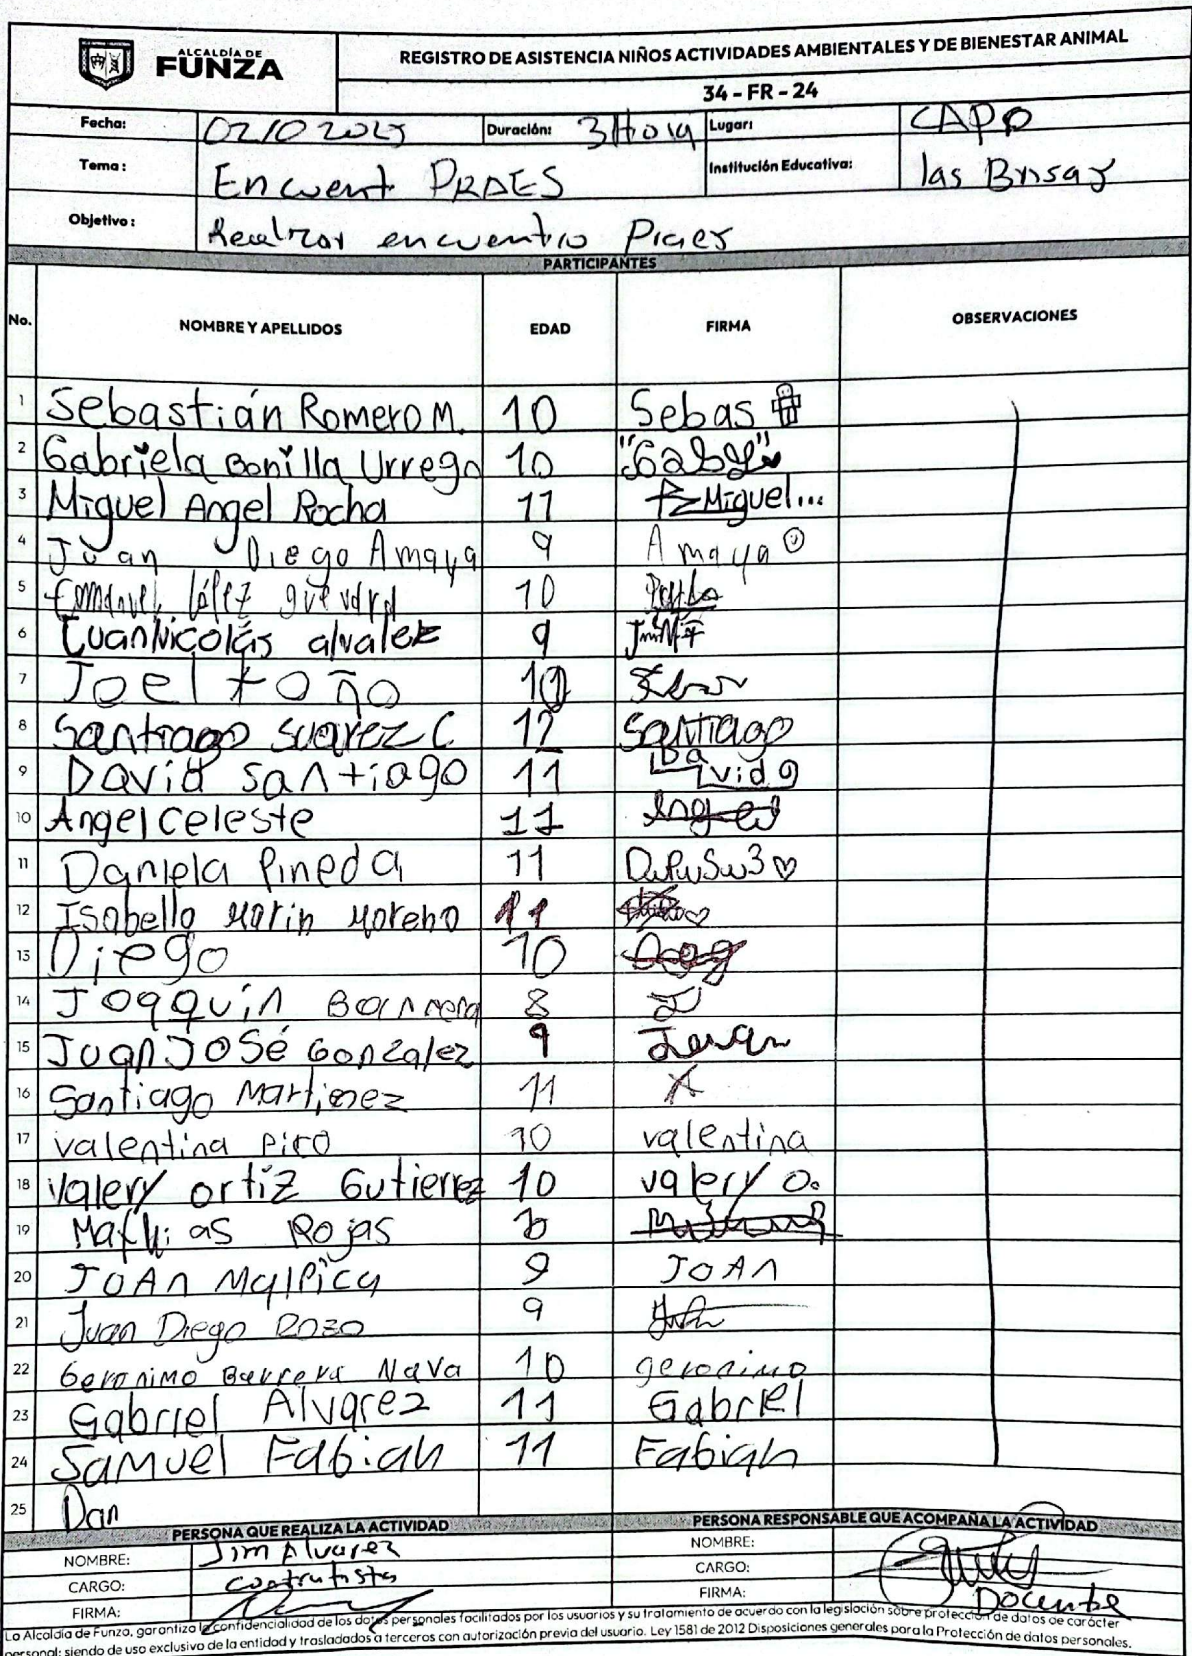 ALCALDÍA DE
FUNZA
REGISTRO DE ASISTENCIA NIÑOS ACTIVIDADES AMBIENTALES Y DE BIENESTAR ANIMAL
34 - FR - 24
Fecha: 02/10 2025 Duración: 3 Hora Lugar: CAPO
Tema: Encuent PRAES Institución Educativa: las Brisas
Objetivo: Realizar encuentro Praes
PARTICIPANTES
No. NOMBRE Y APELLIDOS EDAD FIRMA OBSERVACIONES
1 Sebastián Romero M. 10 Sebas
2 Gabriela Bonilla Urrego 10 "Gaby"
3 Miguel Angel Rocha 11 Miguel...
4 Juan Diego Amaya 9 Amaya
5 Emanuel lópez guevara 10
6 Juan Nicolás alvarez 9
7 Joel toño 10
8 Santiago Suarez C 12 Santiago
9 David santiago 11 David
10 Angel celeste 11 Angel
11 Daniela Pineda 11
12 Isabella Marin Moreno 11
13 Diego 10
14 Joaquín Barrera 8 J
15 Juan José Gonzalez 9 Juan
16 Santiago Martinez 11
17 valentina Pico 10 valentina
18 Valery ortiz Gutierrez 10 valery o.
19 Mathias Rojas
20 JOAN Malpica 9 JOAN
21 Juan Diego Rozo 9
22 Geronimo Barrera Nava 10 geronimo
23 Gabriel Alvarez 11 Gabriel
24 Samuel Fabian 11 Fabian
25 Dan
PERSONA QUE REALIZA LA ACTIVIDAD PERSONA RESPONSABLE QUE ACOMPAÑA LA ACTIVIDAD
NOMBRE: Jim Alvarez NOMBRE:
CARGO: contratista CARGO:
FIRMA: FIRMA: Docente
La Alcaldía de Funza, garantiza la confidencialidad de los datos personales facilitados por los usuarios y su tratamiento de acuerdo con la legislación sobre protección de datos de carácter
personal; siendo de uso exclusivo de la entidad y trasladados a terceros con autorización previa del usuario. Ley 1581 de 2012 Disposiciones generales para la Protección de datos personales.